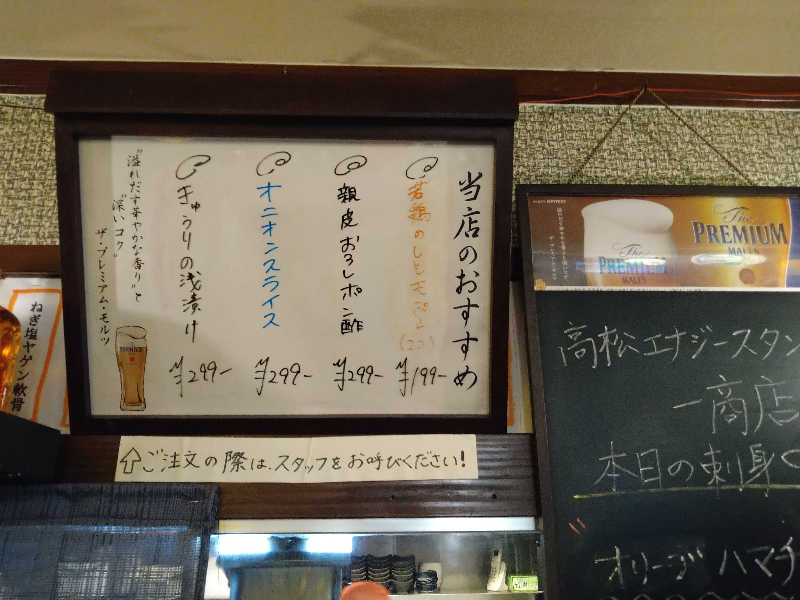 当店のおすすめ
¥199-
親皮おろしポン酢
¥299-
オニオンスライス
¥299-
きゅうりの浅漬け
¥299-
"溢れだす華やかな香り"と
"深いコク"
ザ・プレミアム・モルツ
ご注文の際は、スタッフをお呼びください!
ねぎ塩ヤゲン軟骨
The
PREMIUM
MALT'S
The
PREMIUM
MALT'S
高松エナジースタン
一商店
本日の刺身
オリーブハマチ